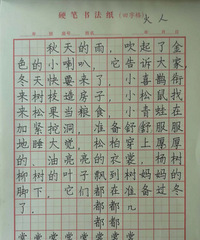 硬笔书法纸（田字格）
秋天的雨，吹起了金
色的小喇叭，它告诉大家，
冬天快要来了。小喜鹊衔
来树枝造房子，小松鼠找
来松果当食粮，小青蛙在
加紧挖洞，准备舒舒服服
地睡大觉。松柏穿上厚厚
的、油亮亮的衣裳，杨树、
柳树的叶子飘到树妈妈的
脚下。它们都在准过冬
了。